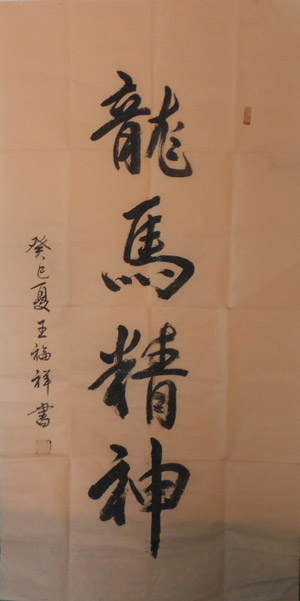 龍馬精神
癸巳夏王福祥書